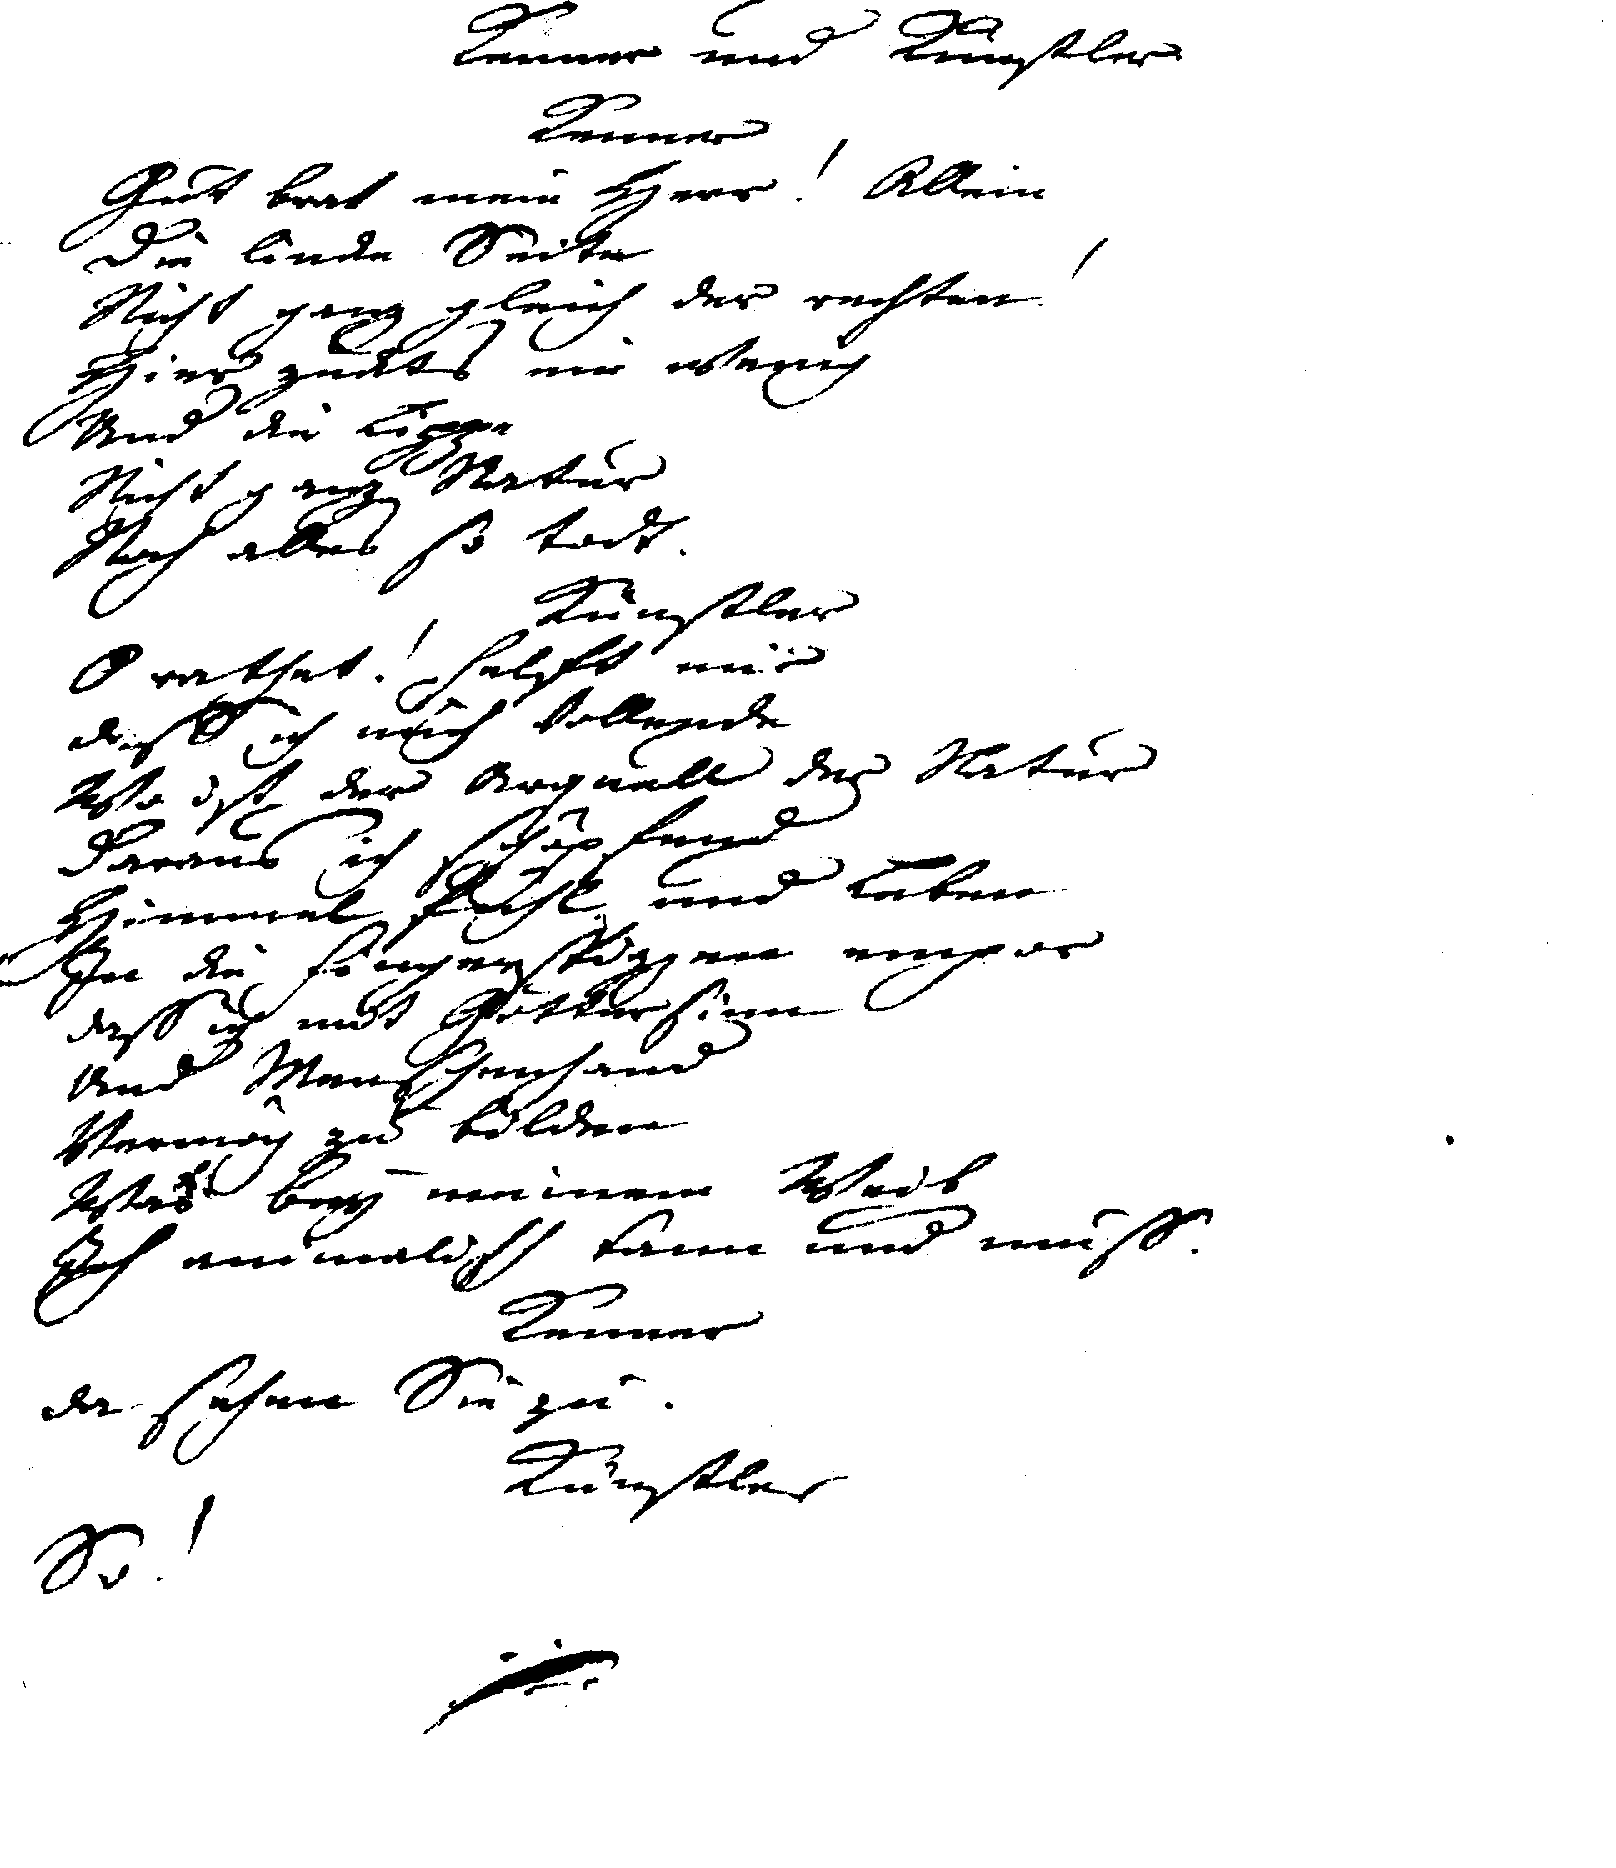 Kenner und Künstler
Kenner
Gut brat mein Herr! Allein
Die linke Seite
Nicht ganz gleich der rechten!
Hier zuckts ein wenig
Und die Lippe
Nicht ganz Natur
Noch alles so todt.
Künstler
O rathet! helft mir
dass ich mich Vollende
Wo ist der Urquell der Natur
Daraus ich schöpfend
Himmel fühl und Leben
In die fingerspizzen empor
dass ich mit Göttersinn
Und Menschenhand
Vermög zu bilden
Was bey meinem Weib
Ich animalisch kann und muss.
Kenner
da sehen Sie zu.
Künstler
So!